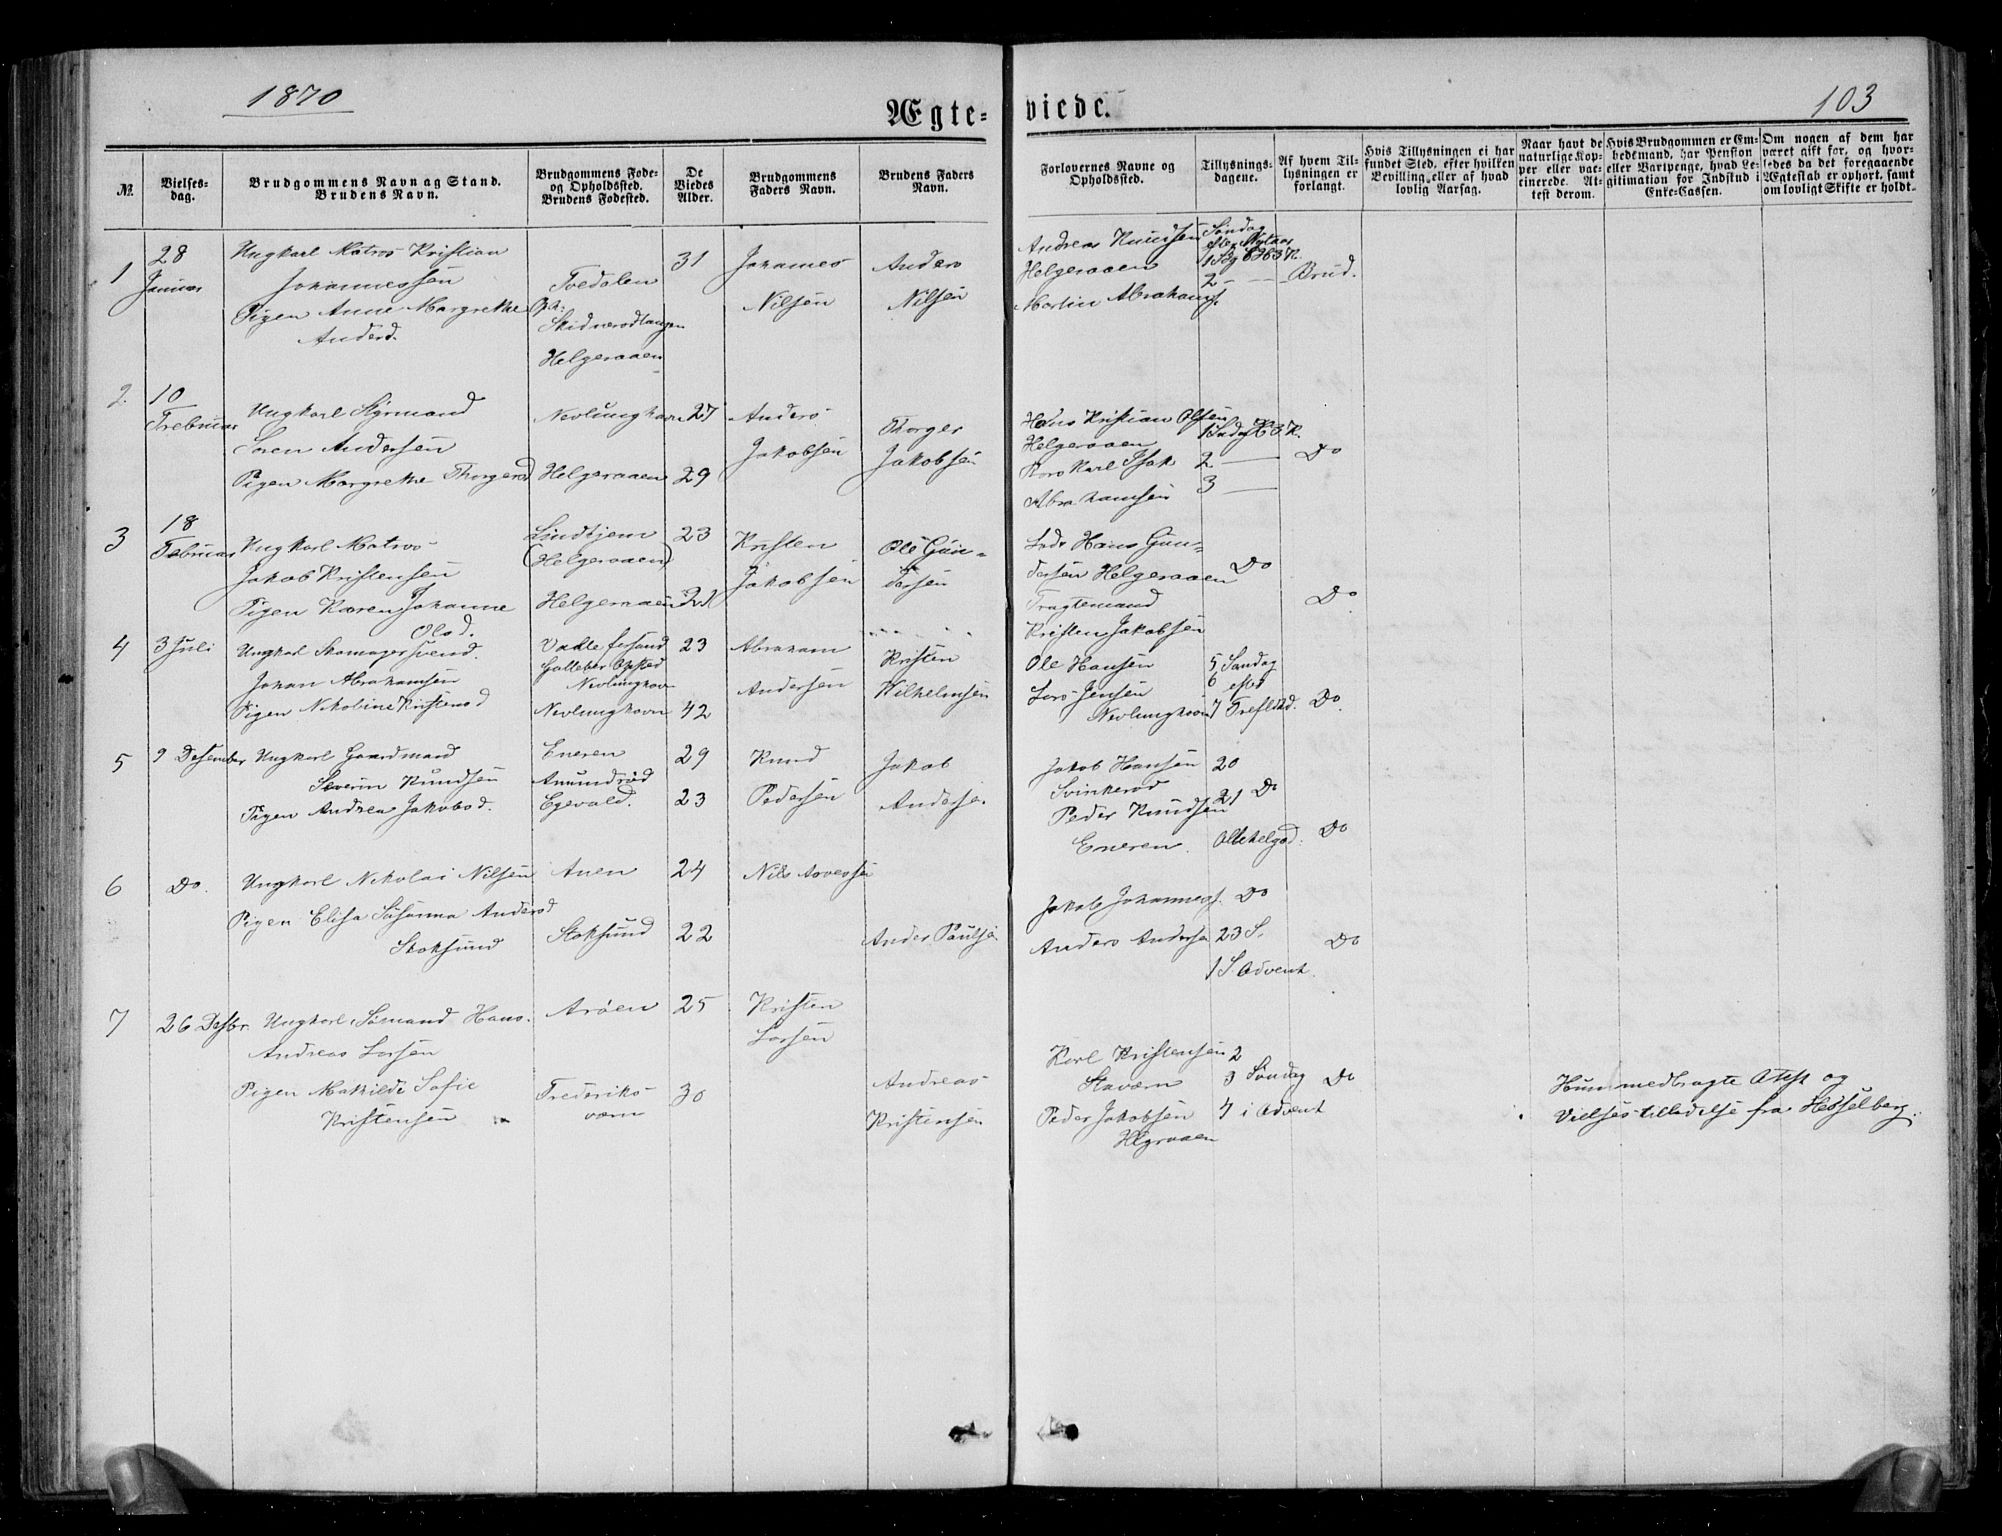 1870
103
Ægte-
viede.
No.
Vielses-
dag.
Brudgommens Navn og Stand.
Brudens Navn.
Brudgommens Føde-
og Opholdssted.
Brudens Fødested.
De
Viedes
Alder.
Brudgommens
Faders Navn.
Brudens Faders
Navn.
Forlovernes Navne og
Opholdssted.
Tillysnings-
dagene.
Af hvem Til-
lysningen er
forlangt.
Hvis Tillysningen ei har
fundet Sted, efter hvilken
Bevilling eller af hvad
lovlig Aarsag.
Naar havt de
naturlige Kop-
per eller vac-
cinerede. At-
test derom.
Hvis Brudgommen er Em-
bedsmand, har Pension
eller Vartpenge, hvad Le-
gitimation for Indskud i
Enke-Cassen.
Om nogen af dem har
været gift før, og hvor-
ledes da det foregaaende
Ægteskab er ophørt, samt
om lovligt Skifte er holdt.
1
28
Januar
Ungkarl Matros Kristian
Johannessen
Pigen Anne Margrethe
Andersd.
Tvedalen
Skidnerodtangen
Helgeraaen
31
Johannes
Nilsen
Anders
Nilsen
Andreas Knudsen
Helgeraaen
Martin Abrahams.
Søndag
efter Nytaar
2 -
Brud.
2
10
Februar
Ungkarl Styrmand
Soren Andersen
Pigen Margrethe Thorgersd
Nevlunghavn
Helgeraaen
27
29
Anders
Jakobsen
Thorger
Jakobsen
Hans Kristian Olsen
Helgeraaen
Karl Isak
Abrahamsen
2 —
3 —
Do
3
18
Februar
Ungkarl Matros
Jakob Kristensen
Pigen Karen Johanne
Olsd.
Lindtjem
(Helgeraaen)
Helgeraaen
23
21
Kristen
Jakobsen
Ole Gun-
dersen
Lods Hans Gun-
dersen Helgeraaen
Fragtemand
Kristen Jakobsen
Do
Do
4
3 Juli
Ungkarl Skomagersvend.
Johan Abrahamsen
Pigen Nikoline Kristensd
Nevlunghavn
Nevlunghavn
23
42
Abraham
Andersen
Kristen
Wilhelmsen
Ole Hansen
Lars Jensen
Nevlunghavn
5 Søndag
6 efter
7 Trefold.
Do
5
9 Desember
Ungkarl Gaardmand
Severin Knudsen
Pigen Andrea Jakobsd.
Eneren
Amundrød
Egevald.
29
23
Knud
Pedersen
Jakob
Andersen
Jakob Hansen
Svinkerød
Peder Knudsen
Eneren.
20
21 Do
Allehelgsd.
Do
6
Do.
Ungkarl Nikolai Nilsen
Pigen Elisa Susanna Andersd
Stoksund
Auen
Stoksund
24
22
Nils
Anders Paulsen
Jakob Johannes.
Anders Andersen
Do
23 S.
1 S. Advent.
Do
7
26 Desbr.
Ungkarl Sømand Hans
Andreas Larsen
Pigen Mathilde Sofie
Kristensen
Arøen
Frederiks
værn
25
30
Kristen
Larsen
Andreas
Kristensen
Karl Kristensen
Staværn
Peder Jakobsen
Hlgraaen
2
3 Søndag
4 i Advent
Do
Hun medbragte Attst og
Vielses-tilladelse fra Hesselberg.